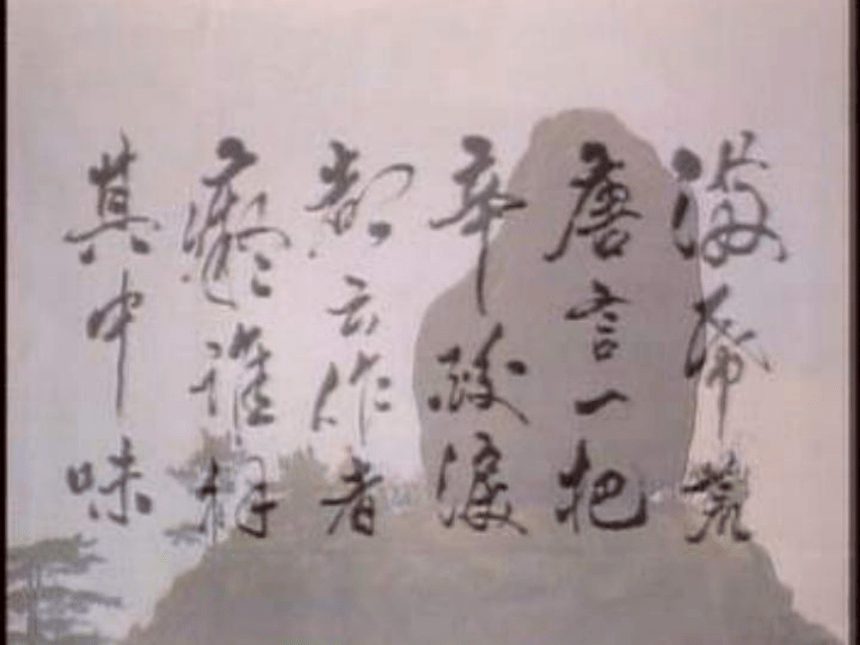 满纸荒
唐言一把
辛酸泪
都云作者
痴谁解
其中味